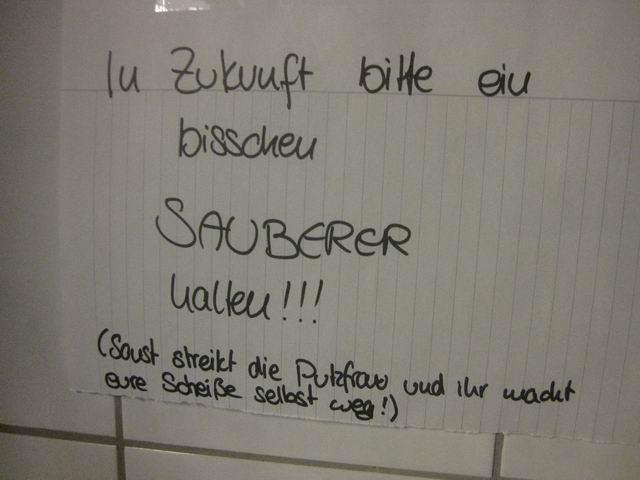 In Zukunft bitte ein
bisschen
SAUBERER
halten!!!
(Sonst streikt die Putzfrau und ihr macht
eure Scheiße selbst weg!)